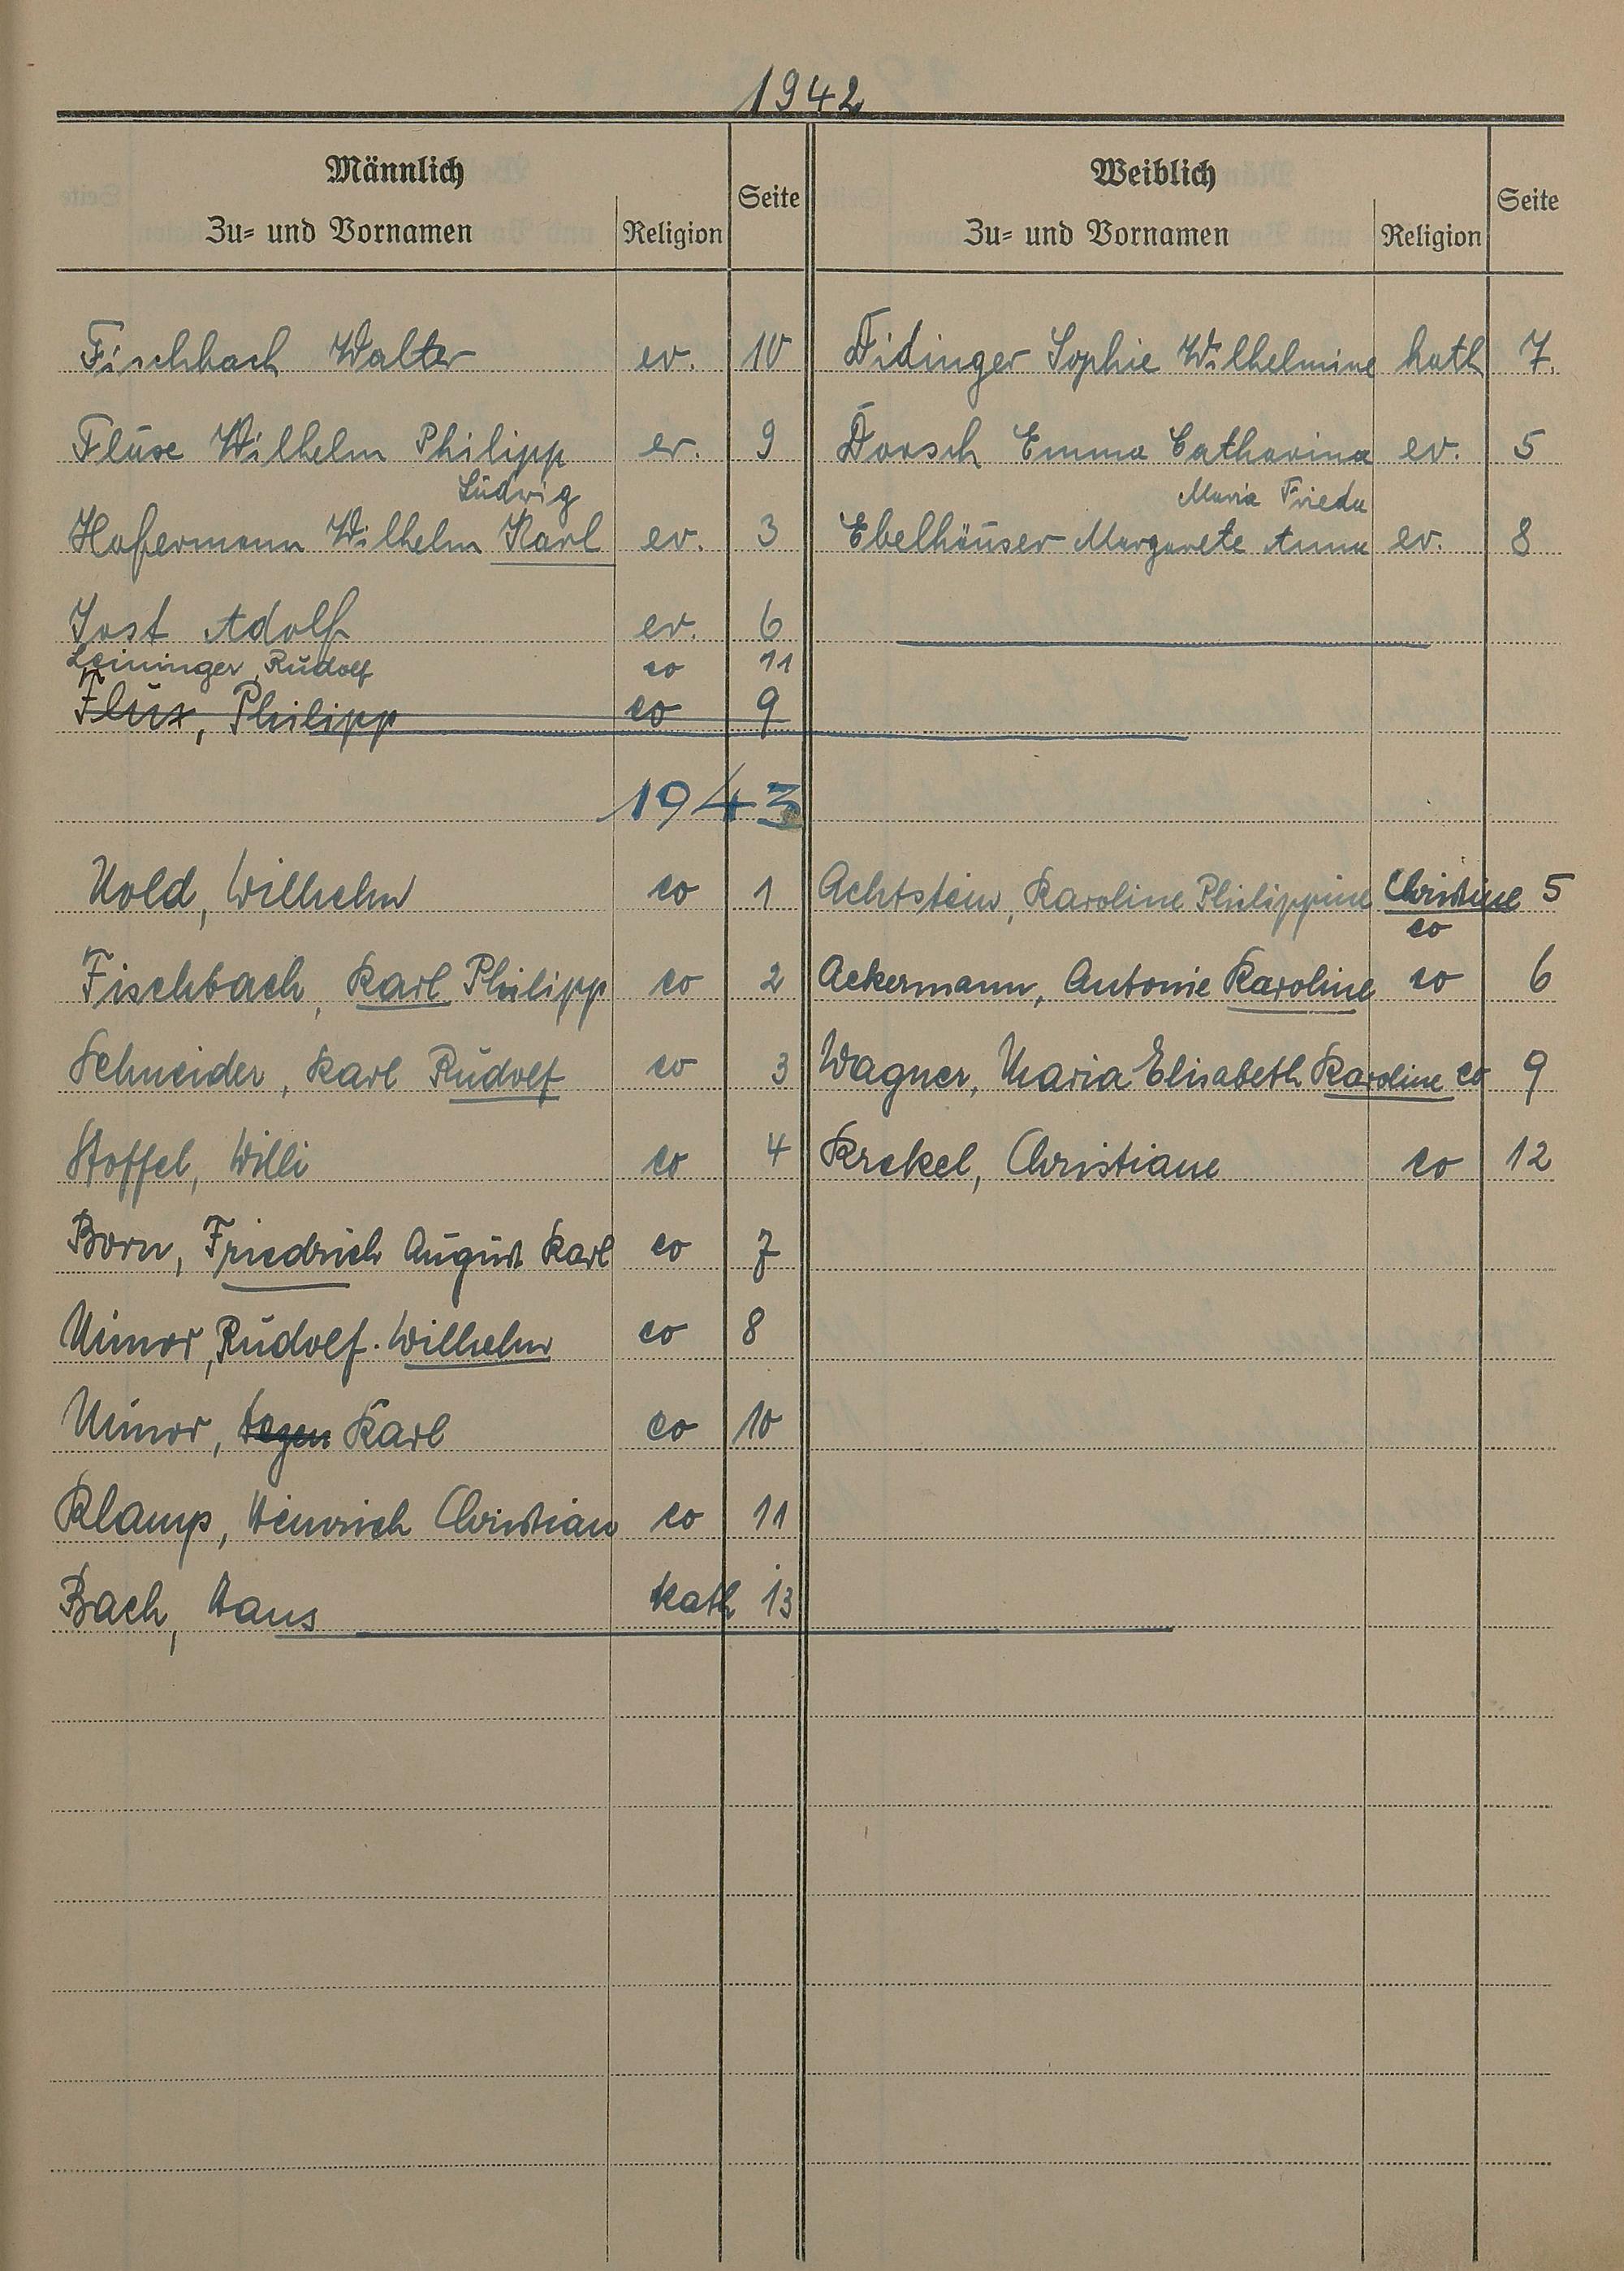 1942
Männlich
Zu= und Vornamen Religion Seite
Weiblich
Zu= und Vornamen Religion Seite
Fischbach Walter ev. 10 Didinger Sophie Wilhelmine kath 7.
Fluse Wilhelm Philipp ev. 9 Dorsch Emma Catharina ev. 5
Ludwig Maria Frieda
Hofermann Wilhelm Karl ev. 3 Ebelhäuser Margarete Anna ev. 8
Jost Adolf ev. 6
Leininger, Rudolf ev 11
Flux, Philipp ev 9
1943
Nold, Wilhelm ev 1 Achtstein, Karoline Philippine Christine 5
ev
Fischbach, Karl Philipp ev 2 Ackermann, Antonie Karoline ev 6
Schneider, Karl Rudolf ev 3 Wagner, Maria Elisabeth Karoline ev 9
Stoffel, Willi ev 4 Krekel, Christiane ev 12
Born, Friedrich August Karl ev 7
Minor, Rudolf Wilhelm ev 8
Minor, Karl ev 10
Klamp, Heinrich Christian ev 11
Bach, Hans kath 13